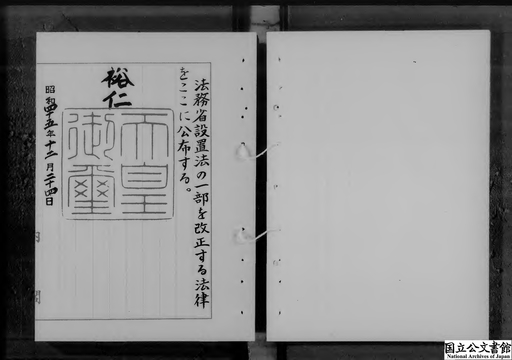 法務省設置法の一部を改正する法律
をここに公布する。
裕仁
天皇
御璽
昭和四十五年十二月二十四日
国立公文書館
National Archives of Japan